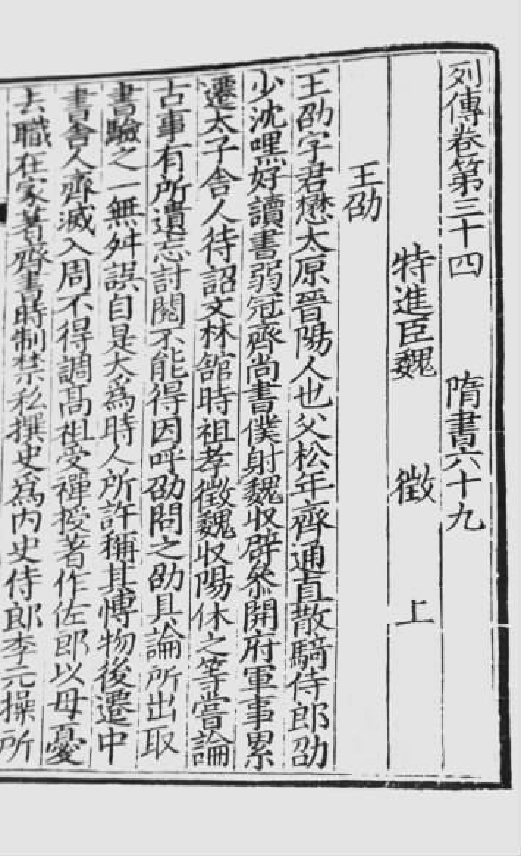 列傳卷第三十四 隋書六十九
特進臣魏 徵 上
王劭
王劭字君懋太原晉陽人也父松年齊通直散騎侍郎劭
少沈嘿好讀書弱冠齊尚書僕射魏收辟叅開府軍事累
遷太子舍人待詔文林舘時祖孝徵魏收陽休之等嘗論
古事有所遺忘討閱不能得因呼劭問之劭具論所出取
書驗之一無舛誤自是大爲時人所許稱其博物後遷中
書舍人齊滅入周不得調髙祖受禪授著作佐郎以母憂
去職在家著齊書時制禁私撰史爲内史侍郎李元操所